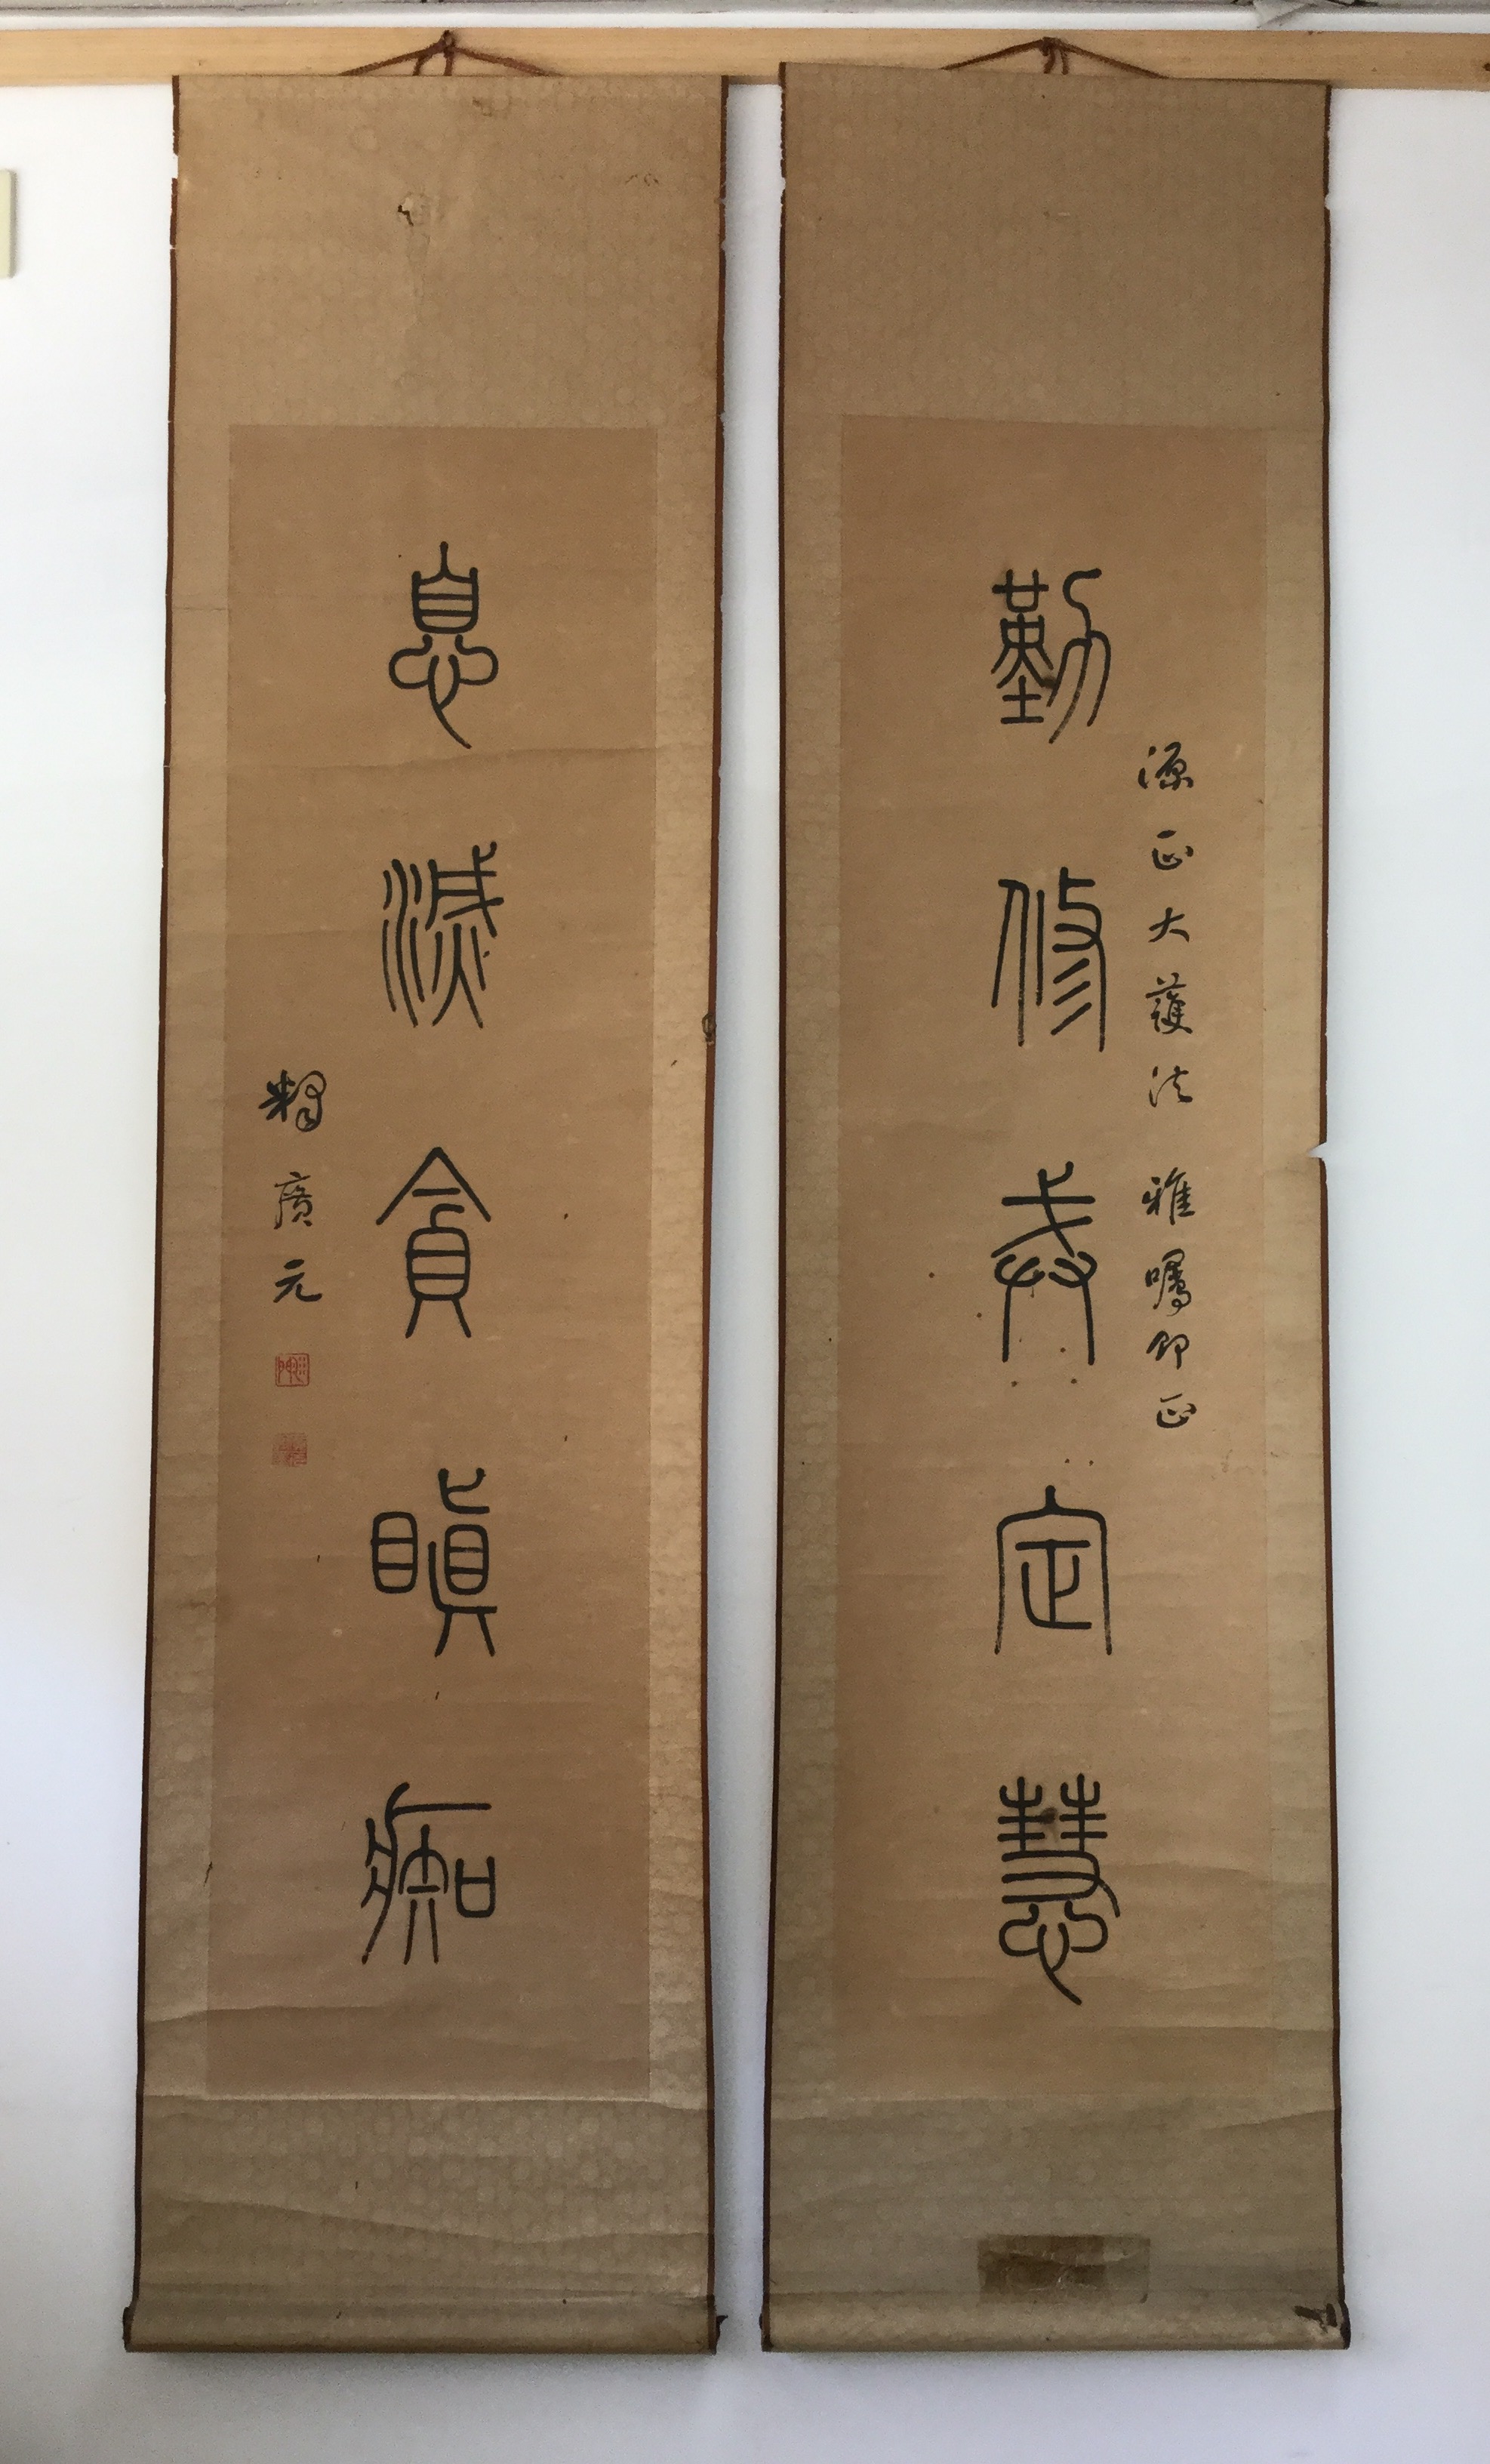 勤修戒定慧
源正大護法 雅囑即正
息滅貪瞋痴
釋廣元